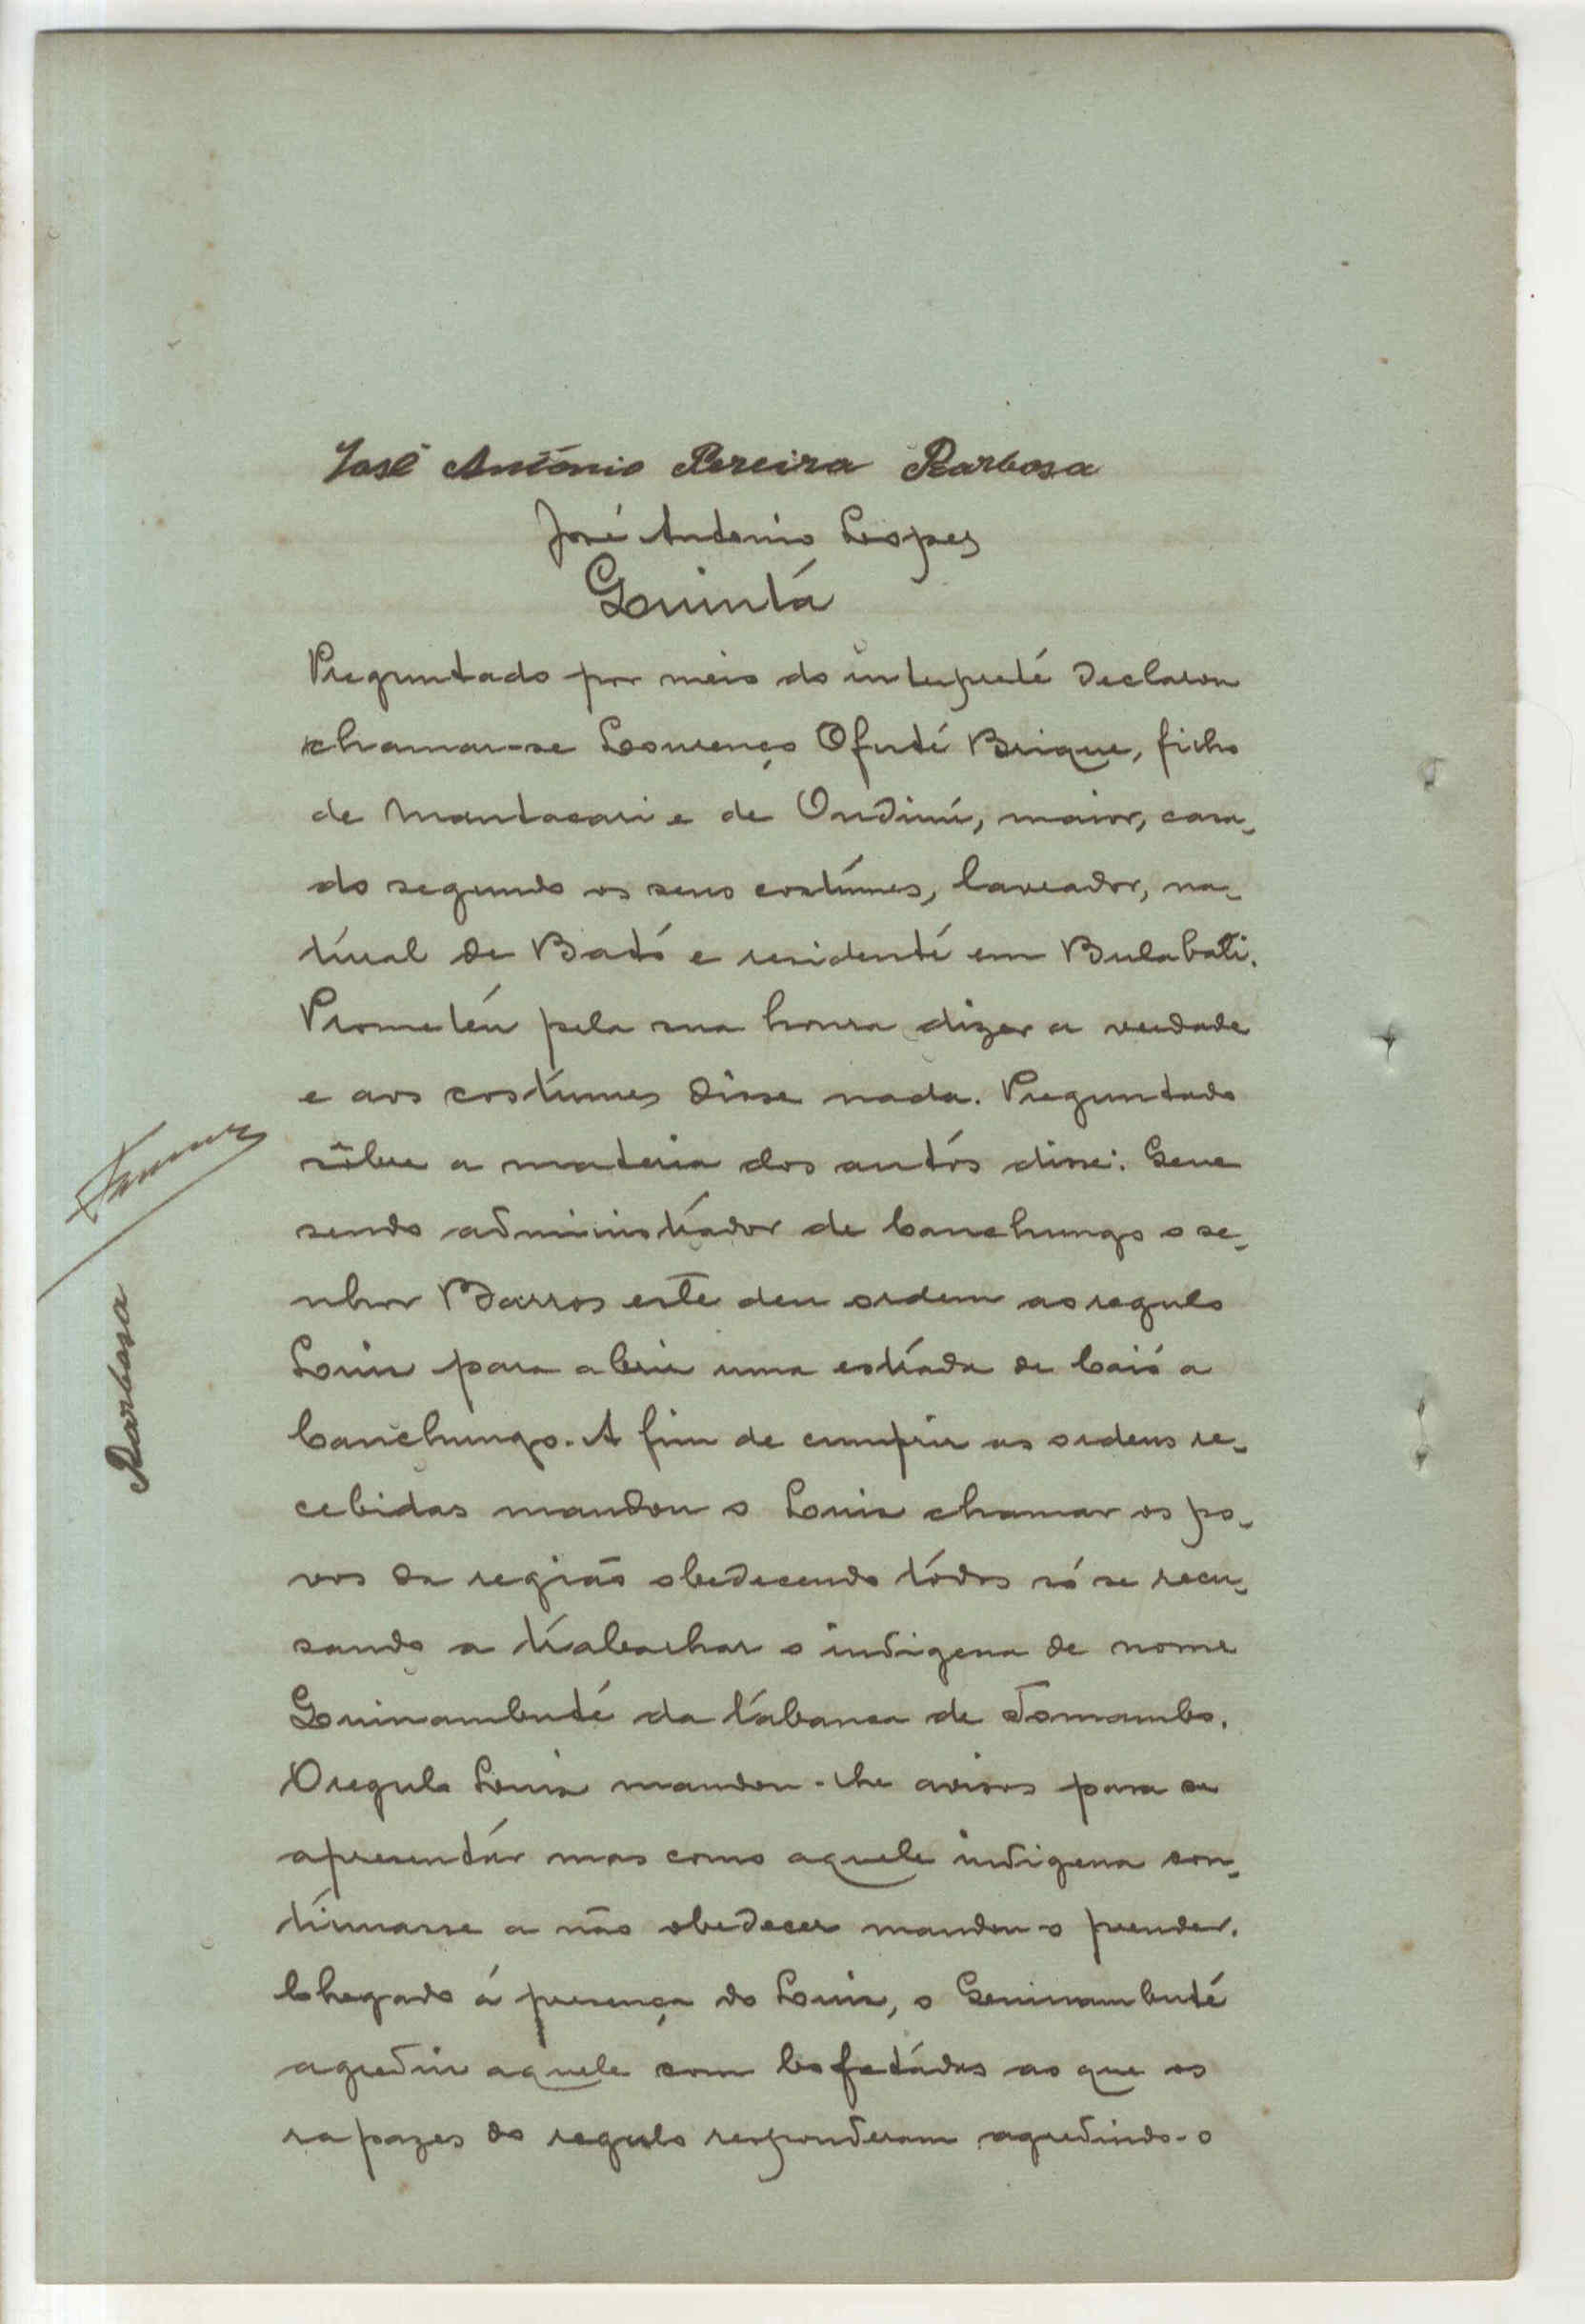 José António Pereira Barbosa
José Antonio Lopes
Quintá
Preguntado por meio do interpreté declarou
chamar-se Lourenço Ofuté Brique, ficho
de Mantacari e de Ondimú, maior, casa-
do segundo os seus costúmes, lavrador, na-
túral de Bató e residenté em Bulabati.
Prometéu pela sua honra dizer a verdade
e aos costúmes disse nada. Preguntado
sôbre a materia dos autós disse: Que
sendo administrádor de Canchungo o se-
nhor Barros este deu ordem ao regulo
Luis para abrir uma estráda de Caió a
Canchungo. A fim de cumprir as ordens re-
cebidas mandou o Luis chamar os po-
vos da região obedecendo tódos só se recu-
sando a trabachar o indigena de nome
Quinambuté da tábanca de Tomambo.
O regulo Luis mandou-lhe avisos para se
apresentár mas como aquele indigena con-
tinuasse a não obedecer mandou-o prender.
Chegado á presença do Luis, o Quinambuté
agrediu aquele com bofetádas ao que os
rapazes do regulo responderam agredindo-o
Barbosa